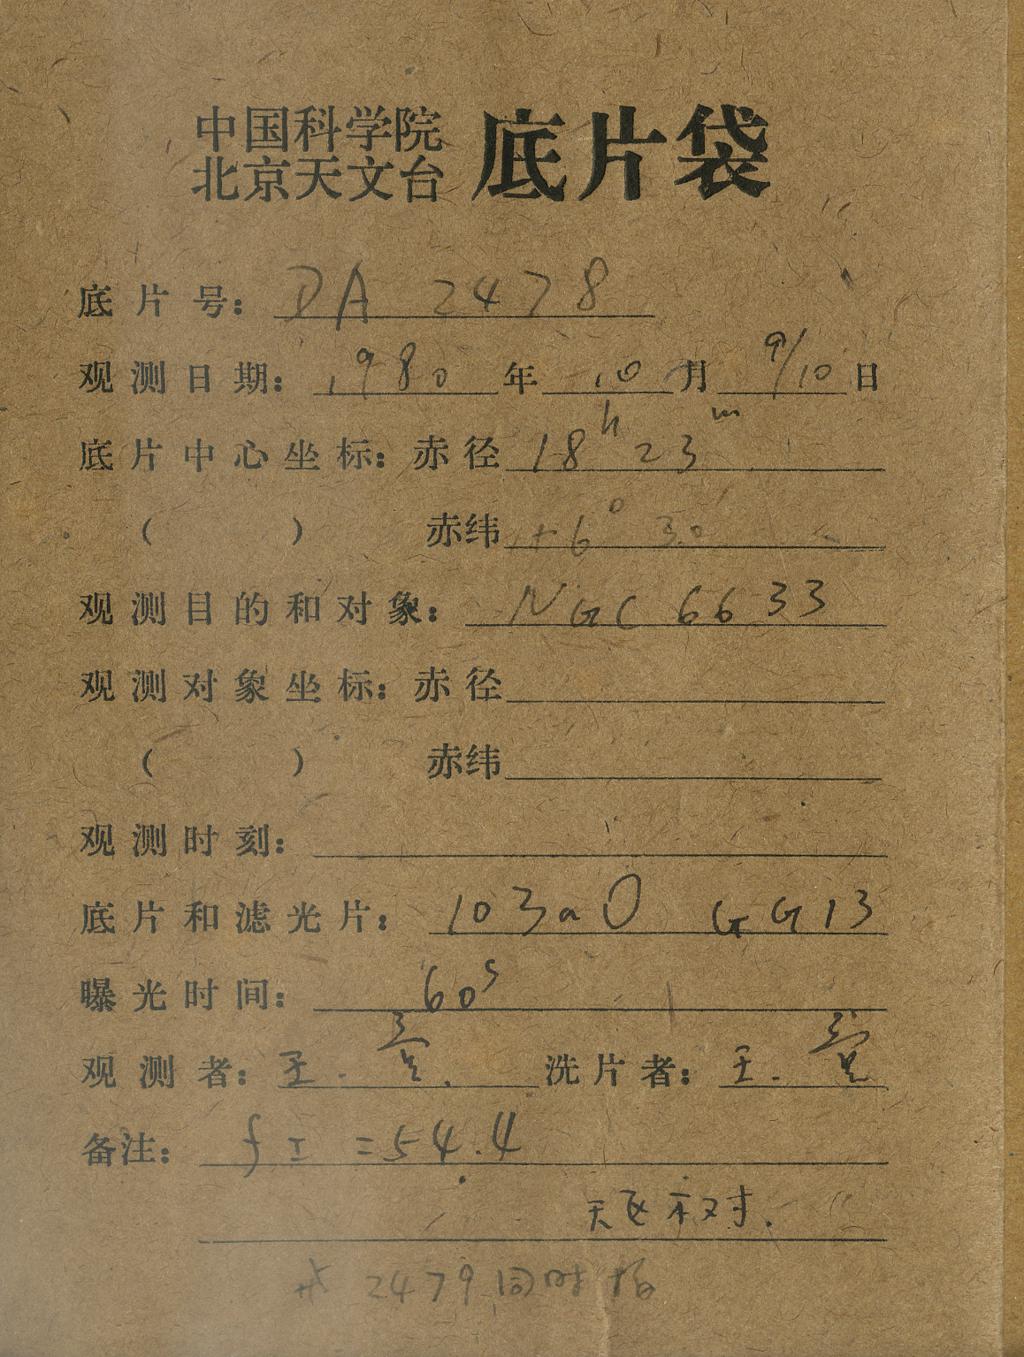 中国科学院
北京天文台 底片袋
底片号: DA 2478
观测日期: 1980 年 10 月 9/10 日
底片中心坐标: 赤径 18h 23m
( ) 赤纬 +6° 30′
观测目的和对象: NGC 6633
观测对象坐标: 赤径
( ) 赤纬
观测时刻:
底片和滤光片: 103aO GG13
曝光时间: 60s
观测者: 王. 洗片者: 王.
备注: fI = 54.4
天区不对.
2479同时拍